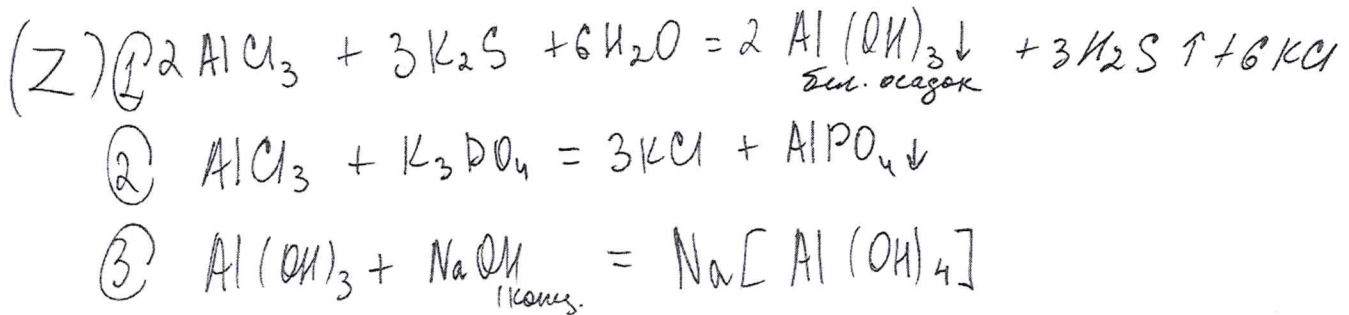 (Z) ① 2AlCl₃ + 3K₂S + 6H₂O = 2Al(OH)₃↓ + 3H₂S↑ + 6KCl
бел. осадок
② AlCl₃ + K₃PO₄ = 3KCl + AlPO₄↓
③ Al(OH)₃ + NaOH = Na[Al(OH)₄]
конц.